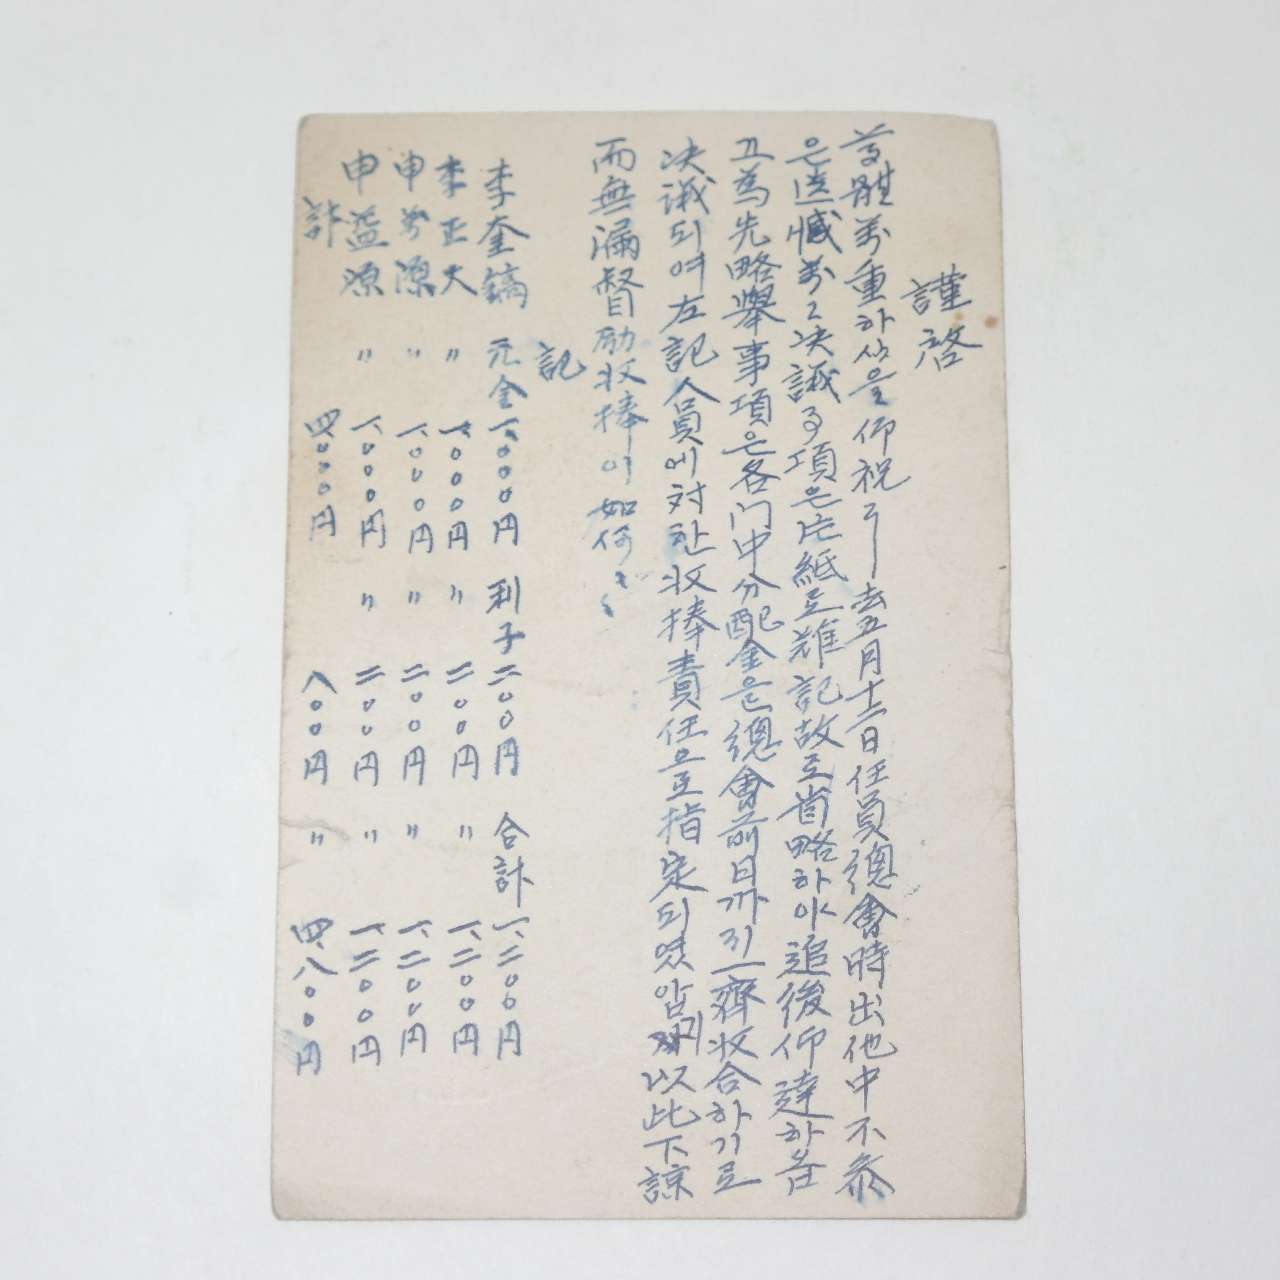 謹啓
尊體萬重하심을 仰祝 去五月十二日任員總會時出他中不參
은遺憾萬々 決議事項은片紙로難記故로省略하야追後仰達하옵
고爲先略擧事項은各門中分配金은總會前日까지一齊收合하기로
決議되여左記人員에対한收捧責任으로指定되엿압기以此下諒
而無漏督励收捧이如何〻
記
李奎鎬 元金一、〇〇〇円 利子二〇〇円 合計一、二〇〇円
李正大 〃 一、〇〇〇円 〃 二〇〇円 〃 一、二〇〇円
申万源 〃 一、〇〇〇円 〃 二〇〇円 〃 一、二〇〇円
申益源 〃 一、〇〇〇円 〃 二〇〇円 〃 一、二〇〇円
計 四、〇〇〇円 八〇〇円 〃 四、八〇〇円